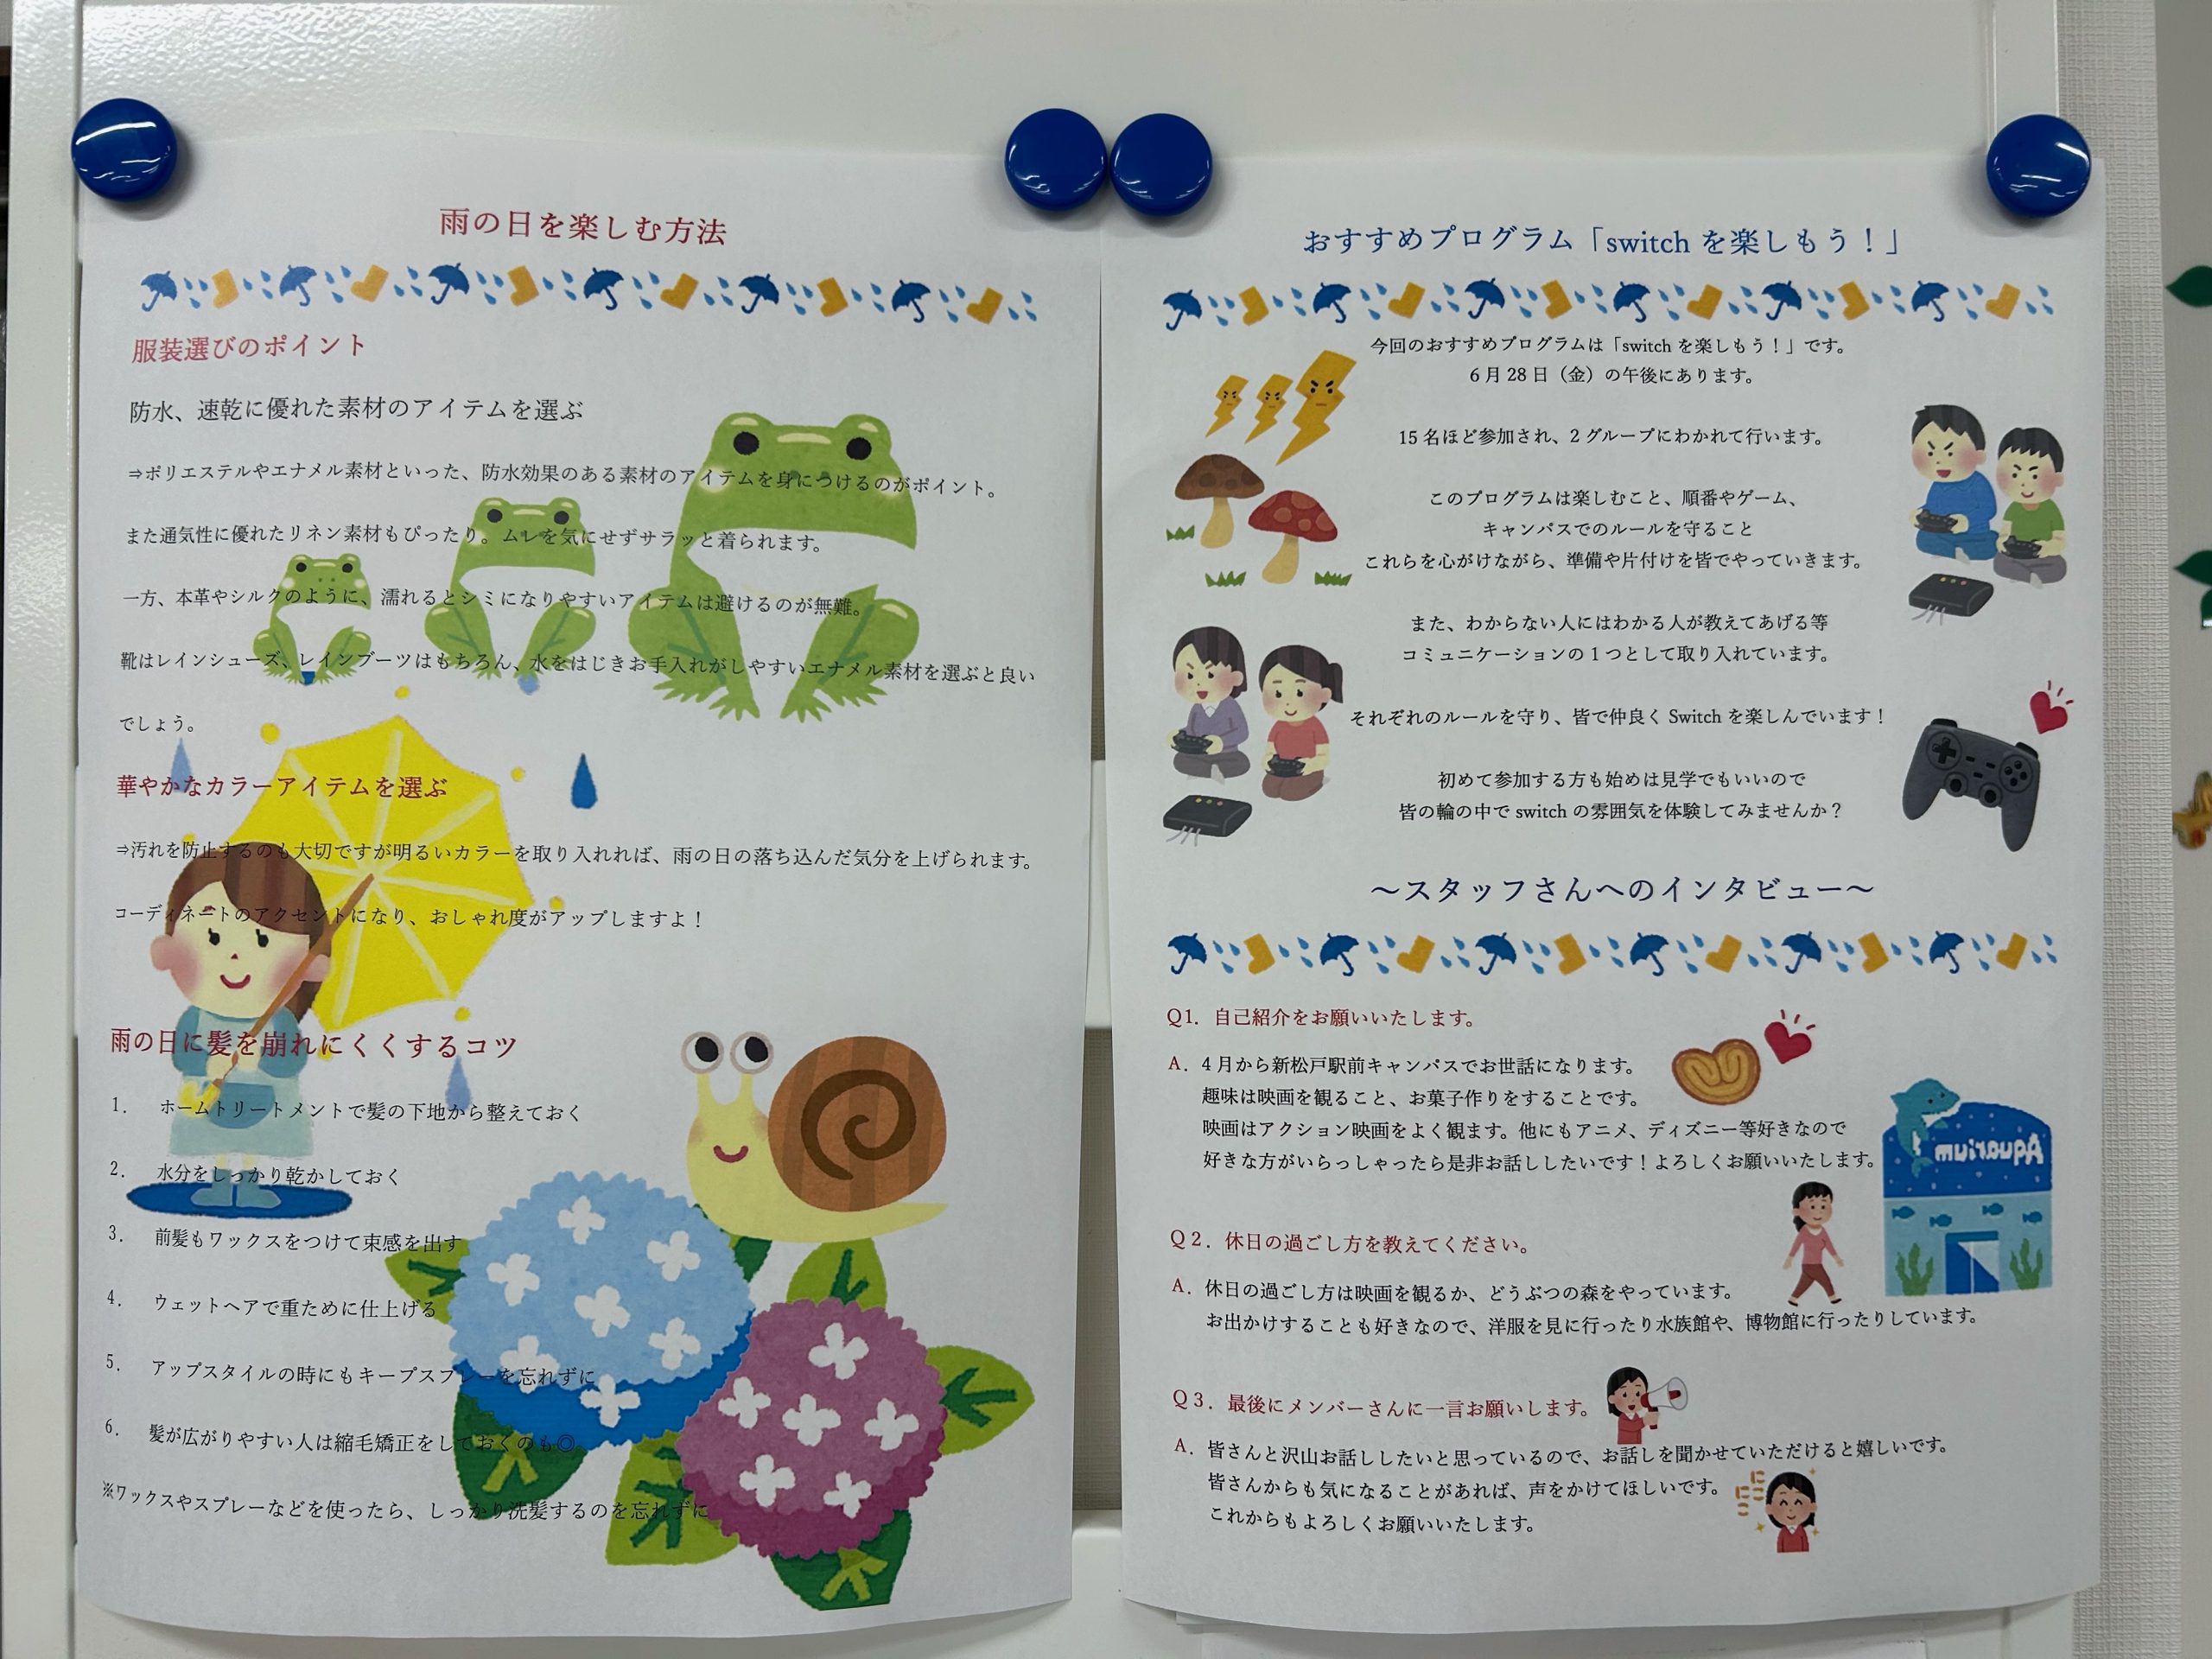 雨の日を楽しむ方法
服装選びのポイント
防水、速乾に優れた素材のアイテムを選ぶ
⇒ポリエステルやエナメル素材といった、防水効果のある素材のアイテムを身につけるのがポイント。
また通気性に優れたリネン素材もぴったり。ムレを気にせずサラッと着られます。
一方、本革やシルクのように、濡れるとシミになりやすいアイテムは避けるのが無難。
靴はレインシューズ、レインブーツはもちろん、水をはじきお手入れがしやすいエナメル素材を選ぶと良い
でしょう。
華やかなカラーアイテムを選ぶ
⇒汚れを防止するのも大切ですが明るいカラーを取り入れれば、雨の日の落ち込んだ気分を上げられます。
コーディネートのアクセントになり、おしゃれ度がアップしますよ！
雨の日に髪を崩れにくくするコツ
1. ホームトリートメントで髪の下地から整えておく
2. 水分をしっかり乾かしておく
3. 前髪もワックスをつけて束感を出す
4. ウェットヘアで重ために仕上げる
5. アップスタイルの時にもキープスプレーを忘れずに
6. 髪が広がりやすい人は縮毛矯正をしておくのも◎
※ワックスやスプレーなどを使ったら、しっかり洗髪するのを忘れずに
おすすめプログラム「switch を楽しもう！」
今回のおすすめプログラムは「switch を楽しもう！」です。
6 月 28 日（金）の午後にあります。
15 名ほど参加され、2 グループにわかれて行います。
このプログラムは楽しむこと、順番やゲーム、
キャンパスでのルールを守ること
これらを心がけながら、準備や片付けを皆でやっていきます。
また、わからない人にはわかる人が教えてあげる等
コミュニケーションの 1 つとして取り入れています。
それぞれのルールを守り、皆で仲良く Switch を楽しんでいます！
初めて参加する方も始めは見学でもいいので
皆の輪の中で switch の雰囲気を体験してみませんか？
～スタッフさんへのインタビュー～
Q1. 自己紹介をお願いいたします。
A. 4 月から新松戸駅前キャンパスでお世話になります。
趣味は映画を観ること、お菓子作りをすることです。
映画はアクション映画をよく観ます。他にもアニメ、ディズニー等好きなので
好きな方がいらっしゃったら是非お話ししたいです！よろしくお願いいたします。
Aquarium
Q２. 休日の過ごし方を教えてください。
A. 休日の過ごし方は映画を観るか、どうぶつの森をやっています。
お出かけすることも好きなので、洋服を見に行ったり水族館や、博物館に行ったりしています。
Q３. 最後にメンバーさんに一言お願いします。
A. 皆さんと沢山お話ししたいと思っているので、お話しを聞かせていただけると嬉しいです。
皆さんからも気になることがあれば、声をかけてほしいです。
これからもよろしくお願いいたします。